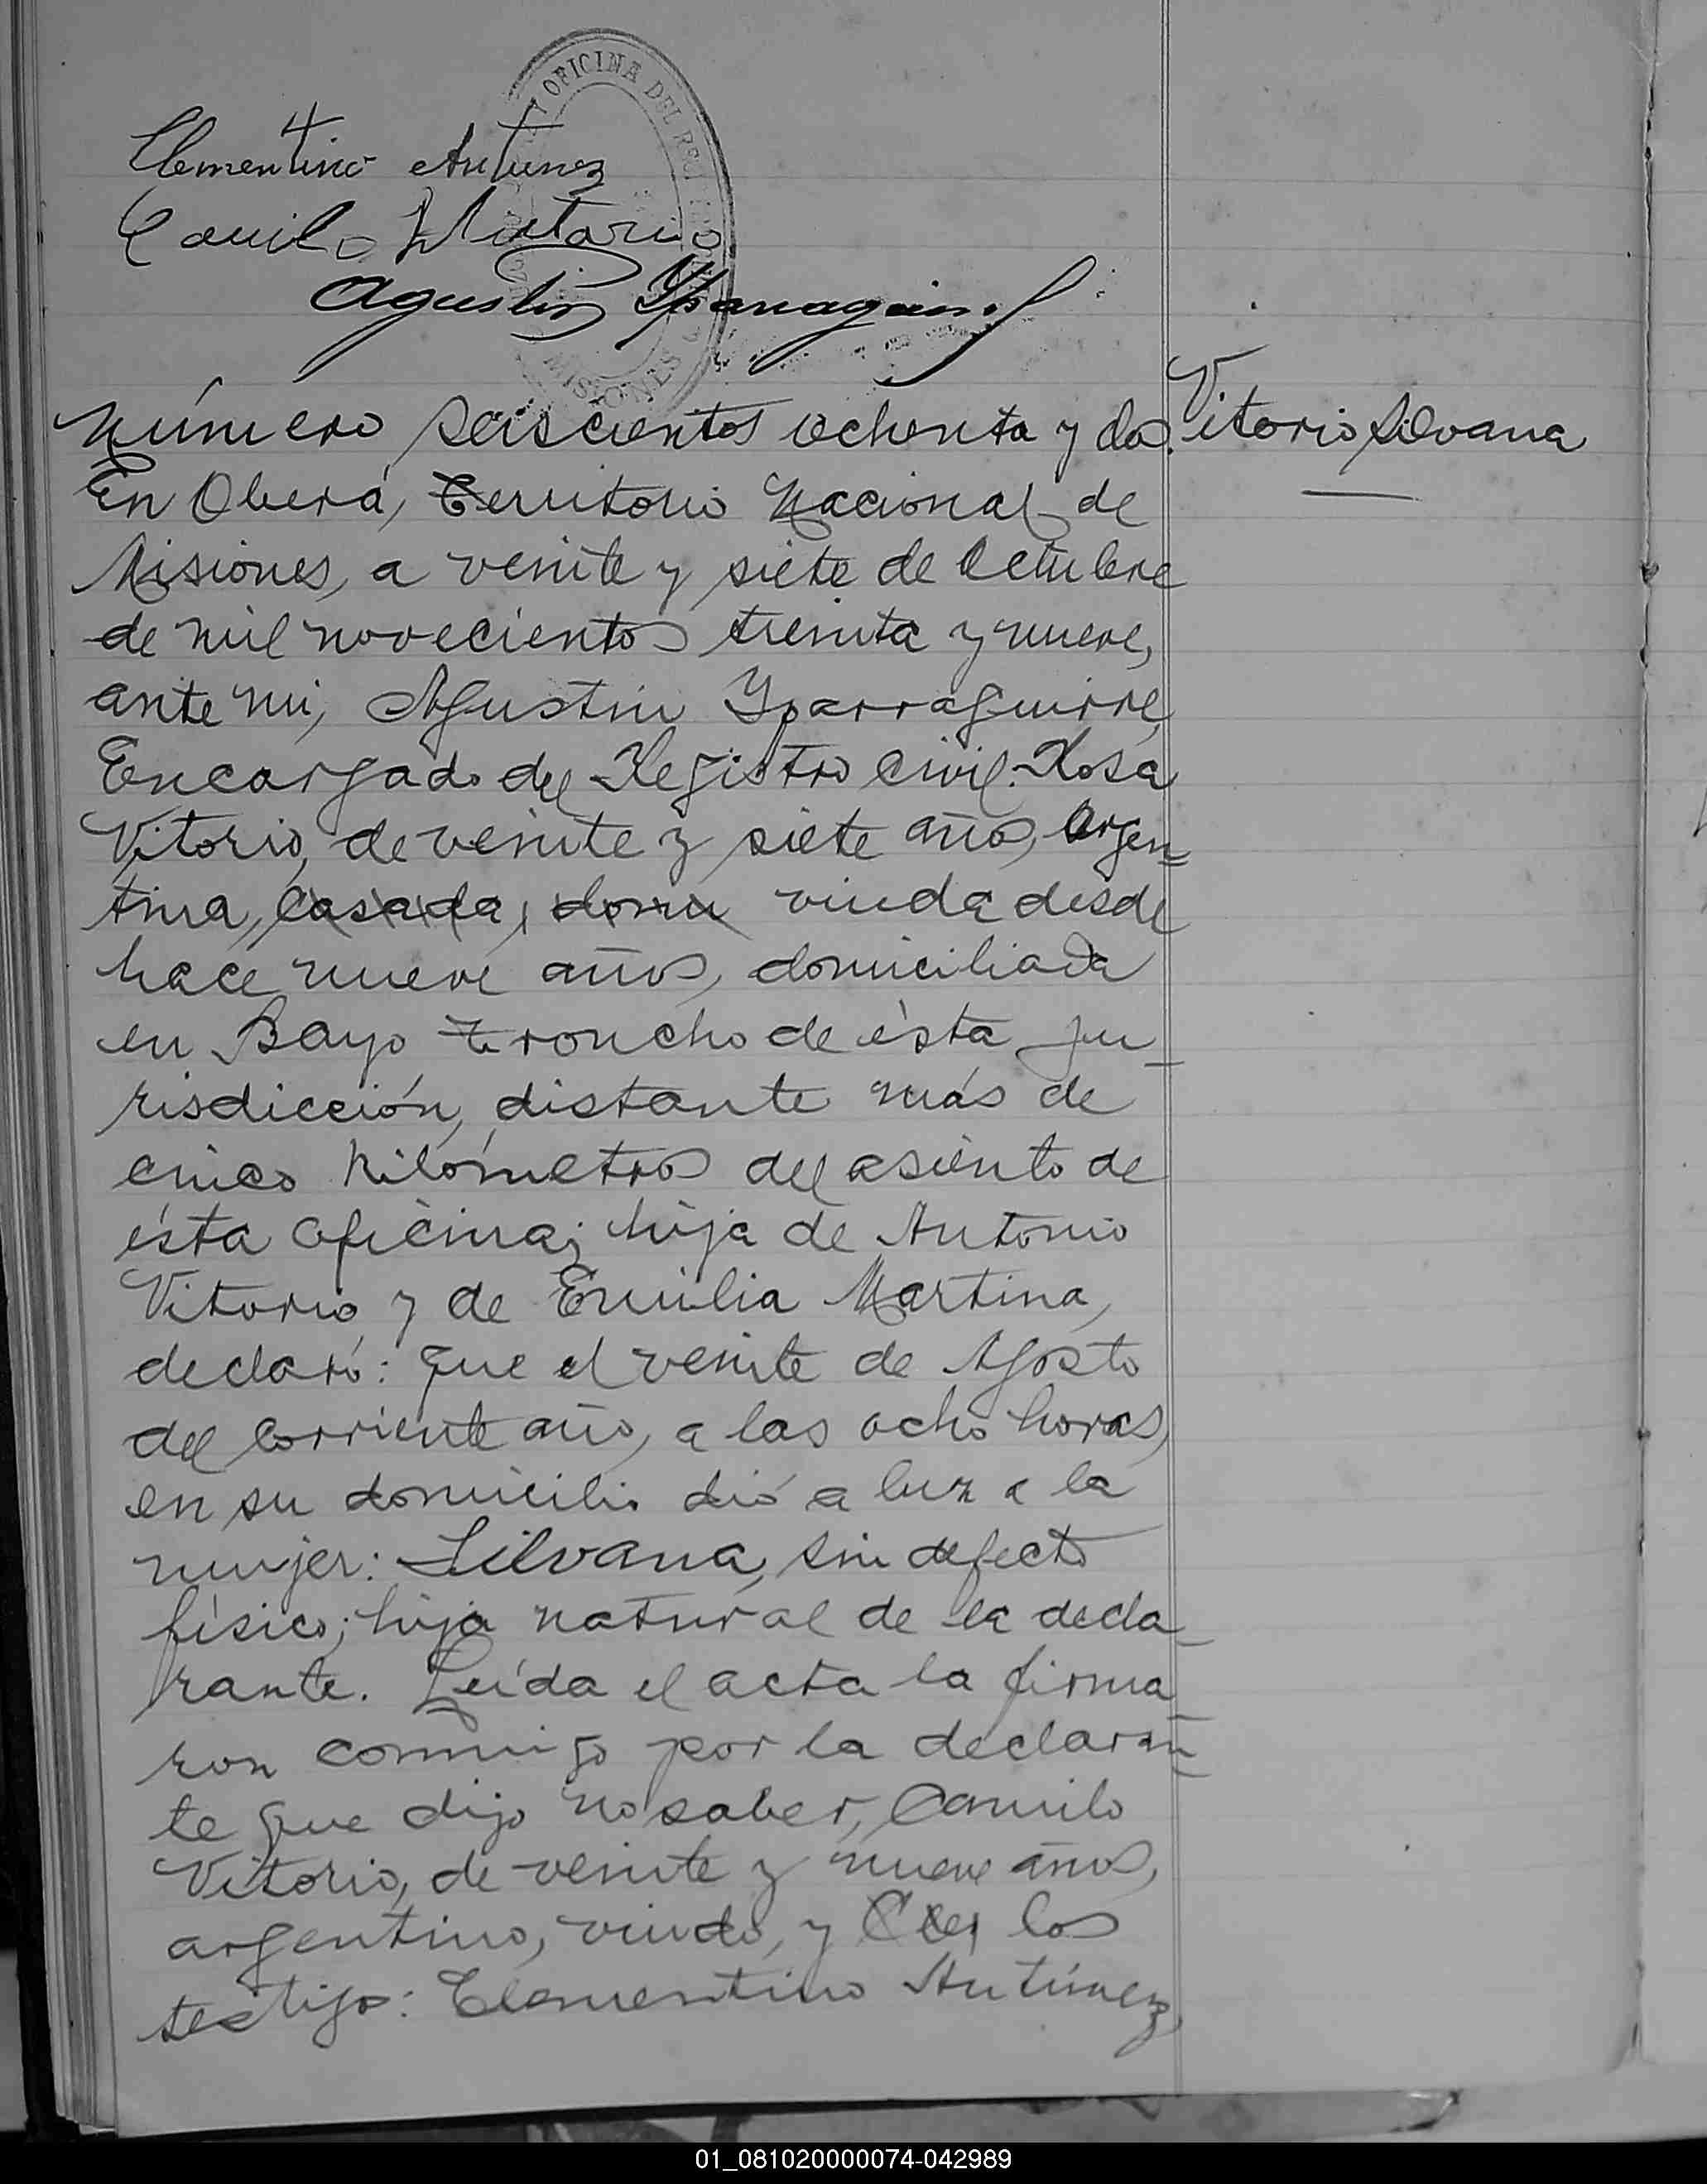 OFICINA DEL REG
Clementino Antunez
Camilo Vitorio
Agustin Yparraguirre
MISIONES
Número seiscientos ochenta y dos. Vitorio Silvana
En Oberá, Territorio Nacional de
Misiones, a veinte y siete de Octubre
de mil novecientos treinta y nueve,
ante mi, Agustin Yparraguirre,
Encargado del Registro Civil: Rosa
Vitorio, de veinte y siete años, Argen=
tina, casada, domi viuda desde
hace nueve años, domiciliada
en Bayo Troncho de ésta ju-
risdicción, distante más de
cinco kilómetros del asiento de
ésta oficina; hija de Antonio
Vitorio y de Emilia Martina,
declaró: que el veinte de Agosto
del corriente año, a las ocho horas,
en su domicilio dió a luz a la
mujer: Silvana, sin defecto
físico; hija natural de la decla-
rante. Leída el acta la firma
ron conmigo por la declaran=
te que dijo no saber, Camilo
Vitorio, de veinte y nueve años,
argentino, viudo, y los
testigos: Clementino Antúnez,
01_081020000074-042989